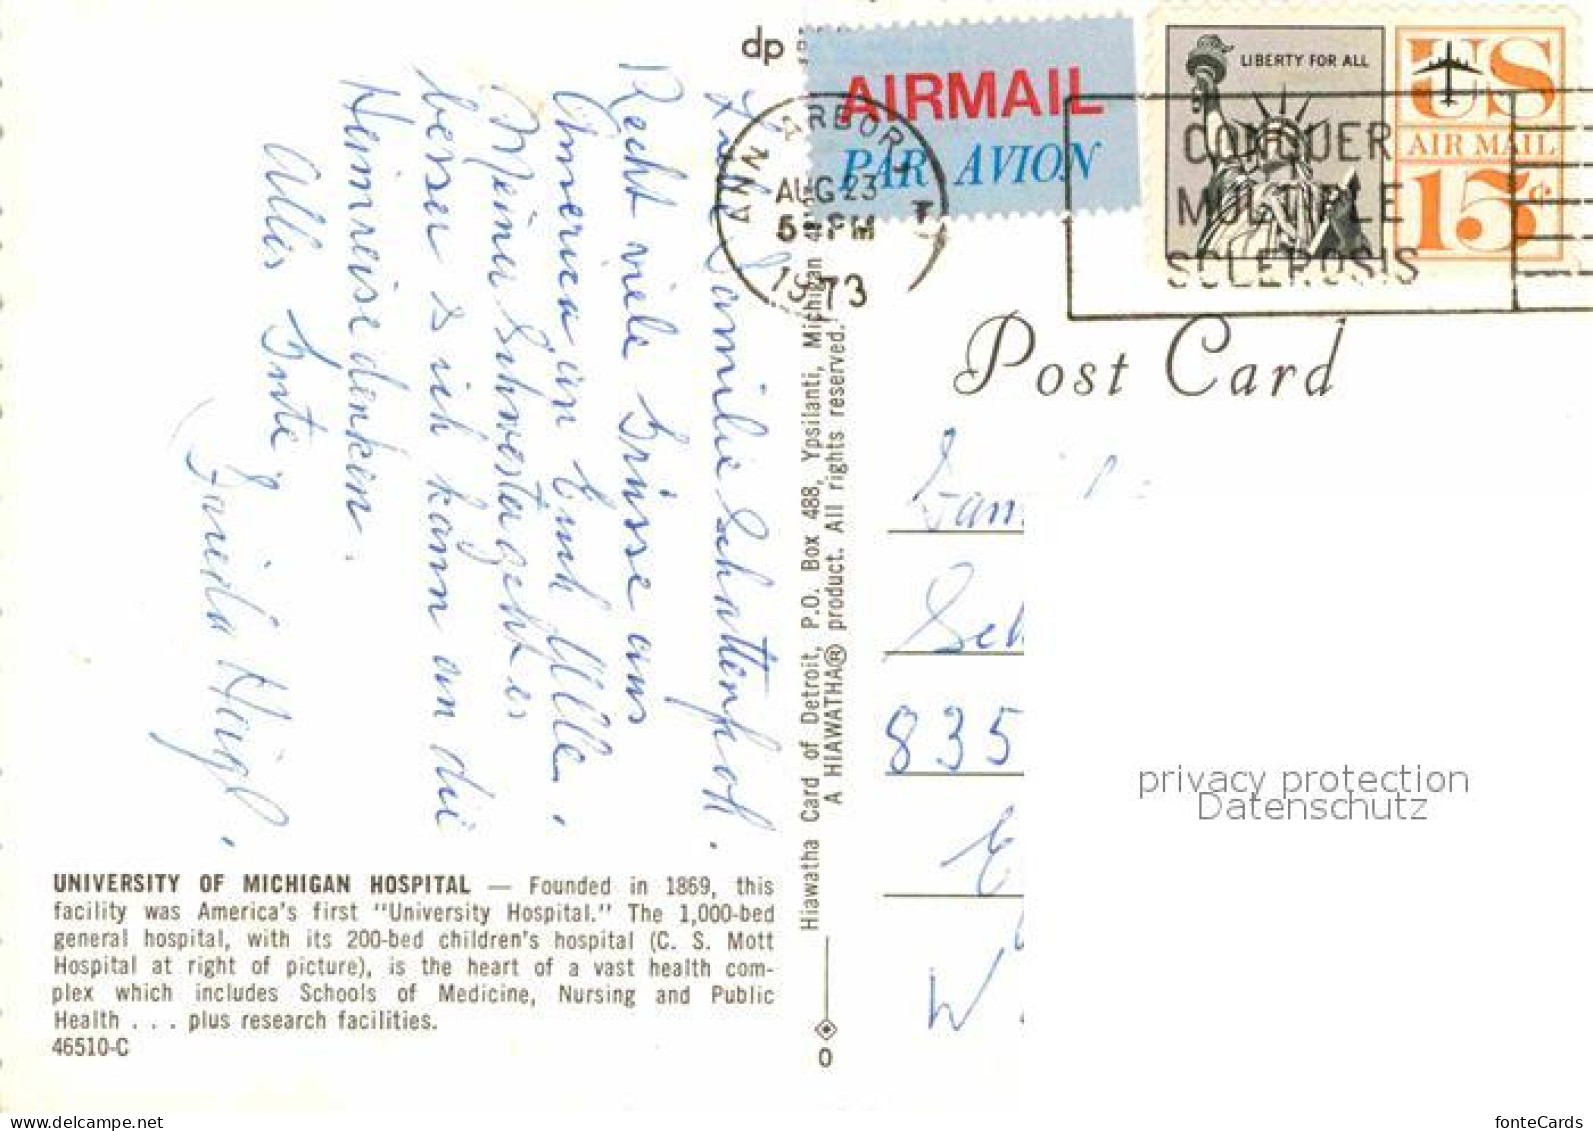 dp
AIRMAIL
PAR AVION
LIBERTY FOR ALL
US
AIR MAIL
15c
ANN ARBOR
AUG 23
PM
1973
CONQUER
MULTIPLE
SCLEROSIS
Post Card
Liebe Familie Schattenhof.
Recht viele Grüsse aus
America an Euch Alle.
Meiner Schwester geht es
besser & ich kann an die
Heimreise denken.
Alles Gute
Frieda Heigl.
UNIVERSITY OF MICHIGAN HOSPITAL — Founded in 1869, this
facility was America's first "University Hospital." The 1,000-bed
general hospital, with its 200-bed children's hospital (C. S. Mott
Hospital at right of picture), is the heart of a vast health com-
plex which includes Schools of Medicine, Nursing and Public
Health . . . plus research facilities.
46510-C
Hiawatha Card of Detroit, P.O. Box 488, Ypsilanti, Michigan
A HIAWATHA® product. All rights reserved.
0
835
privacy protection
Datenschutz
www.delcampe.net
fonteCards